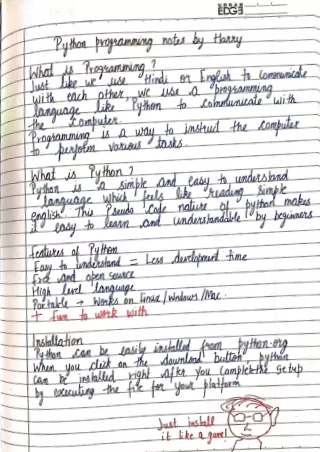 Python programming notes by Harry
What is Programming?
Just like we use Hindi or English to communicate
with each other, we use a programming
language like Python to communicate with
the computer.
Programming is a way to instruct the computer
to perform various tasks.
What is Python?
Python is a simple and easy to understand
language which feels like reading simple
english. This Pseudo code nature of python makes
it easy to learn and understandable by beginners
features of Python
Easy to understand = Less development time
Free and open source
High level language
Portable → Works on linux/windows/Mac.
+ fun to work with
Installation
Python can be easily installed from python.org
When you click on the download button, python
can be installed right after you complete the setup
by executing the file for your platform
Just install
it like a game!